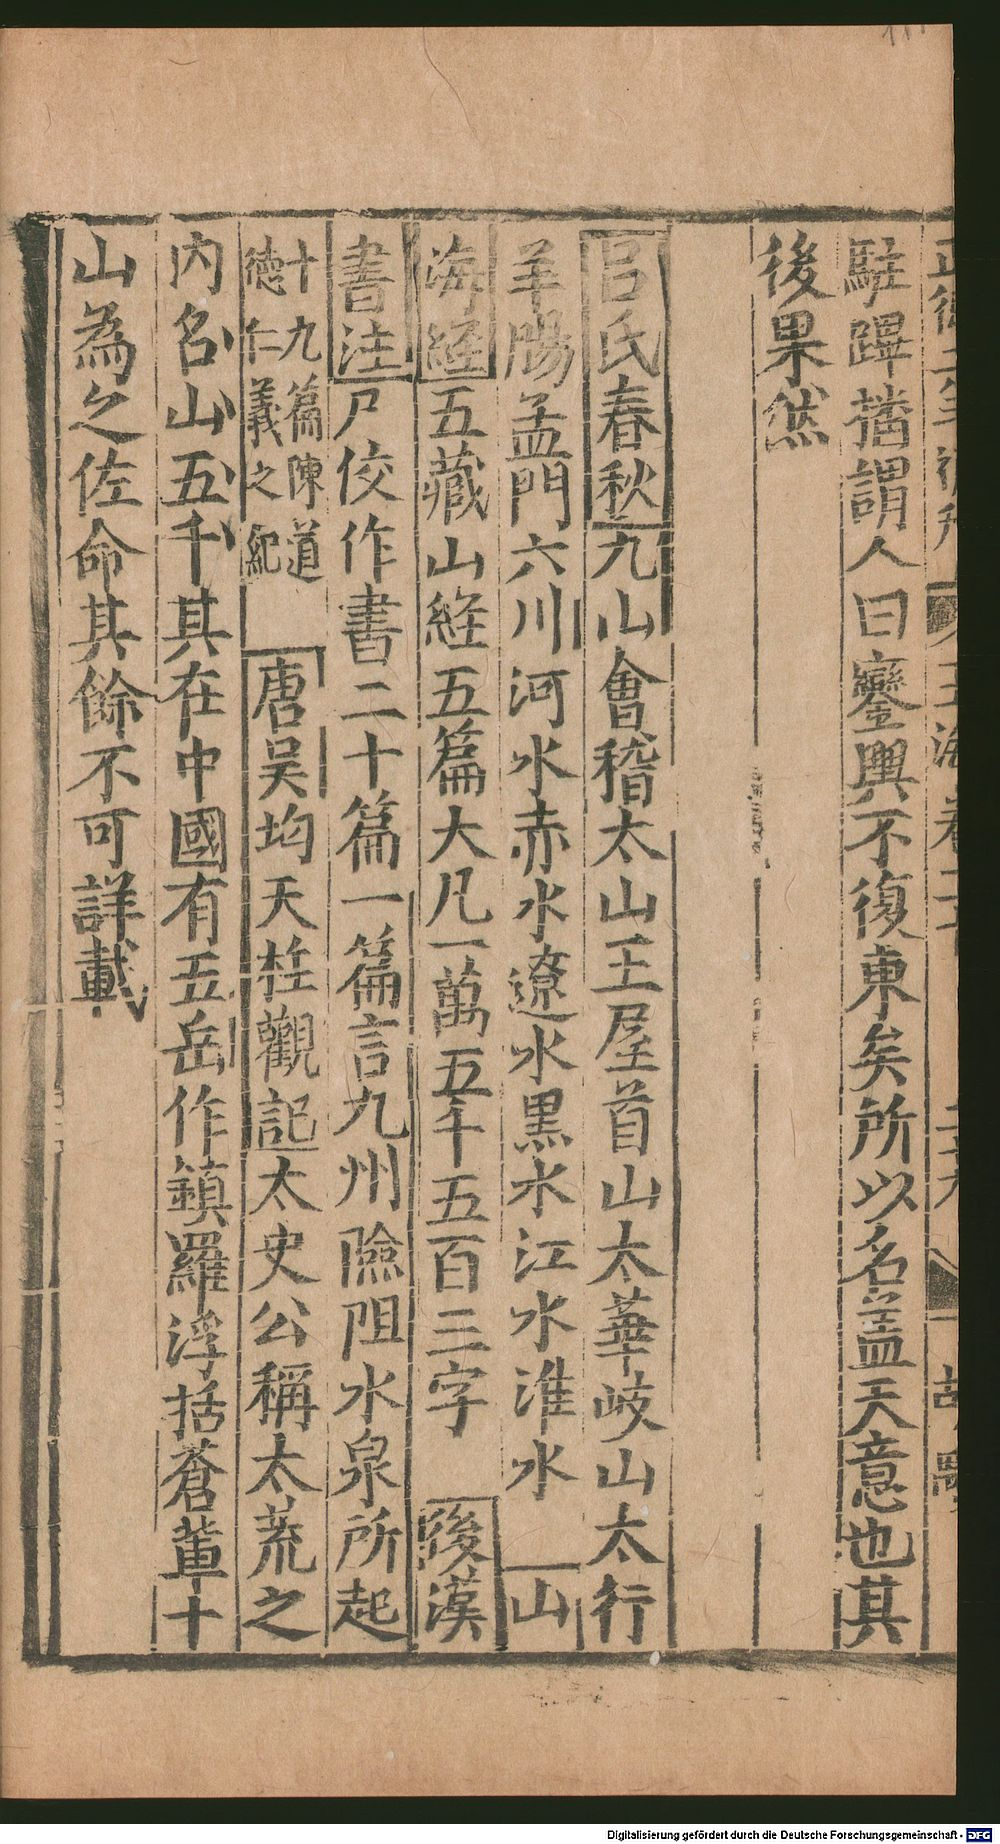 駐蹕擋謂人曰鑾輿不復東矣所以名盖天意也其
後果然
呂氏春秋九山會稽太山王屋首山太華岐山太行
羊膓孟門六川河水赤水遼水黒水江水淮水 山
海經五藏山經五篇大凡一萬五千五百三字 後漢
書注尸佼作書二十篇一篇言九州險阻水泉所起
十九篇陳道
德仁義之紀 唐吴均天柱觀記太史公稱太荒之
内名山五千其在中國有五岳作鎮羅浮括蒼軰十
山為之佐命其餘不可詳載
Digitalisierung gefördert durch die Deutsche Forschungsgemeinschaft - DFG